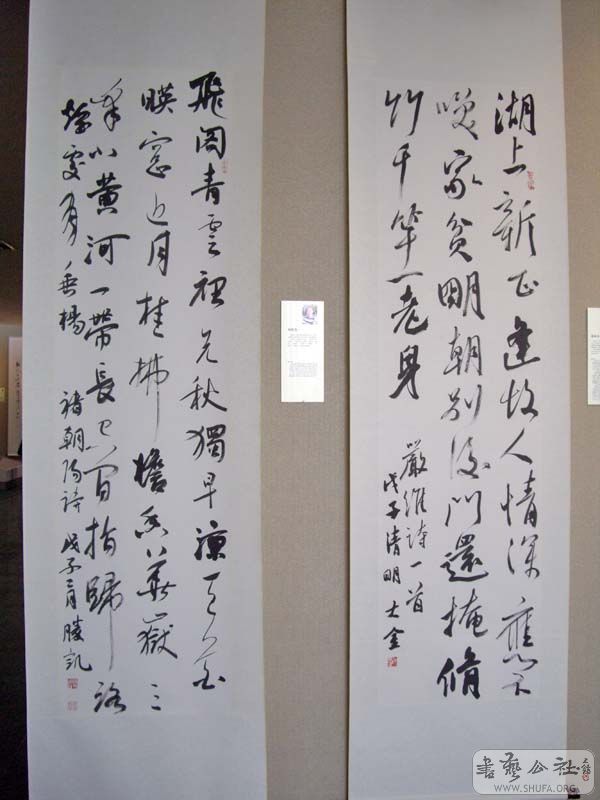 湖上新正逢故人情深應不
咲家貧明朝別後門還掩脩
竹千竿一老身
嚴維詩一首
戊子清明士金
飛閣青雲裡先秋獨早涼天花
暎窓近月桂拂檐香華嶽三
峯小黄河一帶長空間指歸路
煙處有垂楊 褚朝陽詩 戊子三月勝凱
書藝公社
WWW.SHUFA.ORG